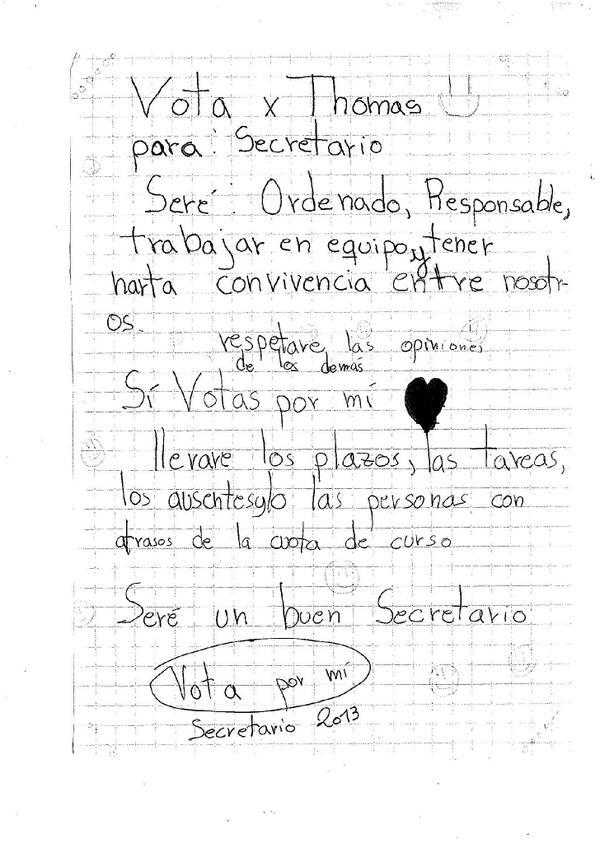 Vota x Thomas
para: Secretario
Seré: Ordenado, Responsable,
trabajar en equipo,y tener
harta convivencia entre nosotr-
os.
respetare las opiniones
de los demás
Sí Votas por mí
llevare los plazos, las tareas,
los ausentes y/o las personas con
atrasos de la cuota de curso
Seré un buen Secretario
Vota por mí
Secretario 2013